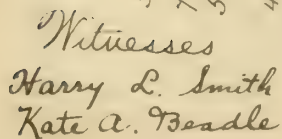 Witnesses
Harry L. Smith
Kate A. Beadle